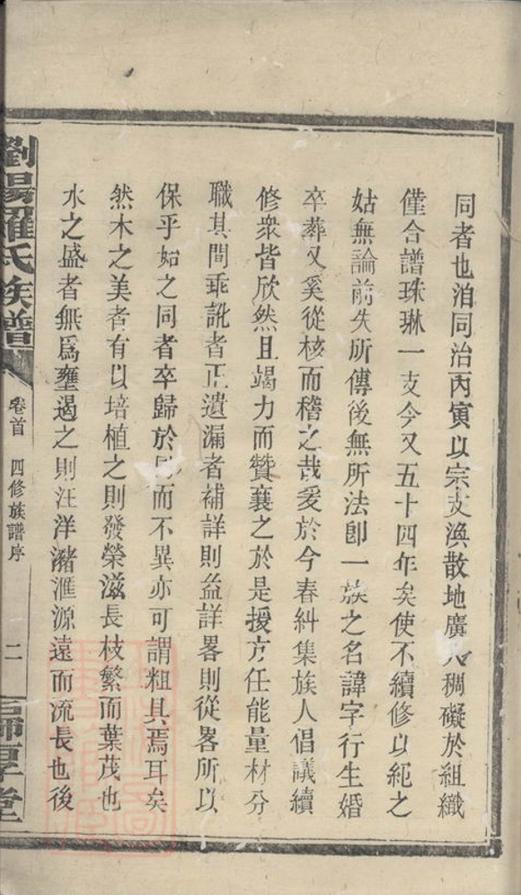 同者也洎同治丙寅以宗支渙散地廣人稠礙於組織
僅合譜珠琳一支今又五十四年矣使不續修以紀之
姑無論前失所傳後無所法卽一族之名諱字行生婚
卒葬又奚從核而稽之哉爰於今春糾集族人倡議續
修衆皆欣然且竭力而贊襄之於是援方任能量材分
職其間乖訛者正遺漏者補詳則益詳畧則從畧所以
保乎始之同者卒歸於同而不異亦可謂粗具焉耳矣
然木之美者有以培植之則發榮滋長枝繁而葉茂也
水之盛者無爲壅遏之則汪洋瀦滙源遠而流長也後
劉陽羅氏族譜
卷首 四修族譜序
二
師厚堂